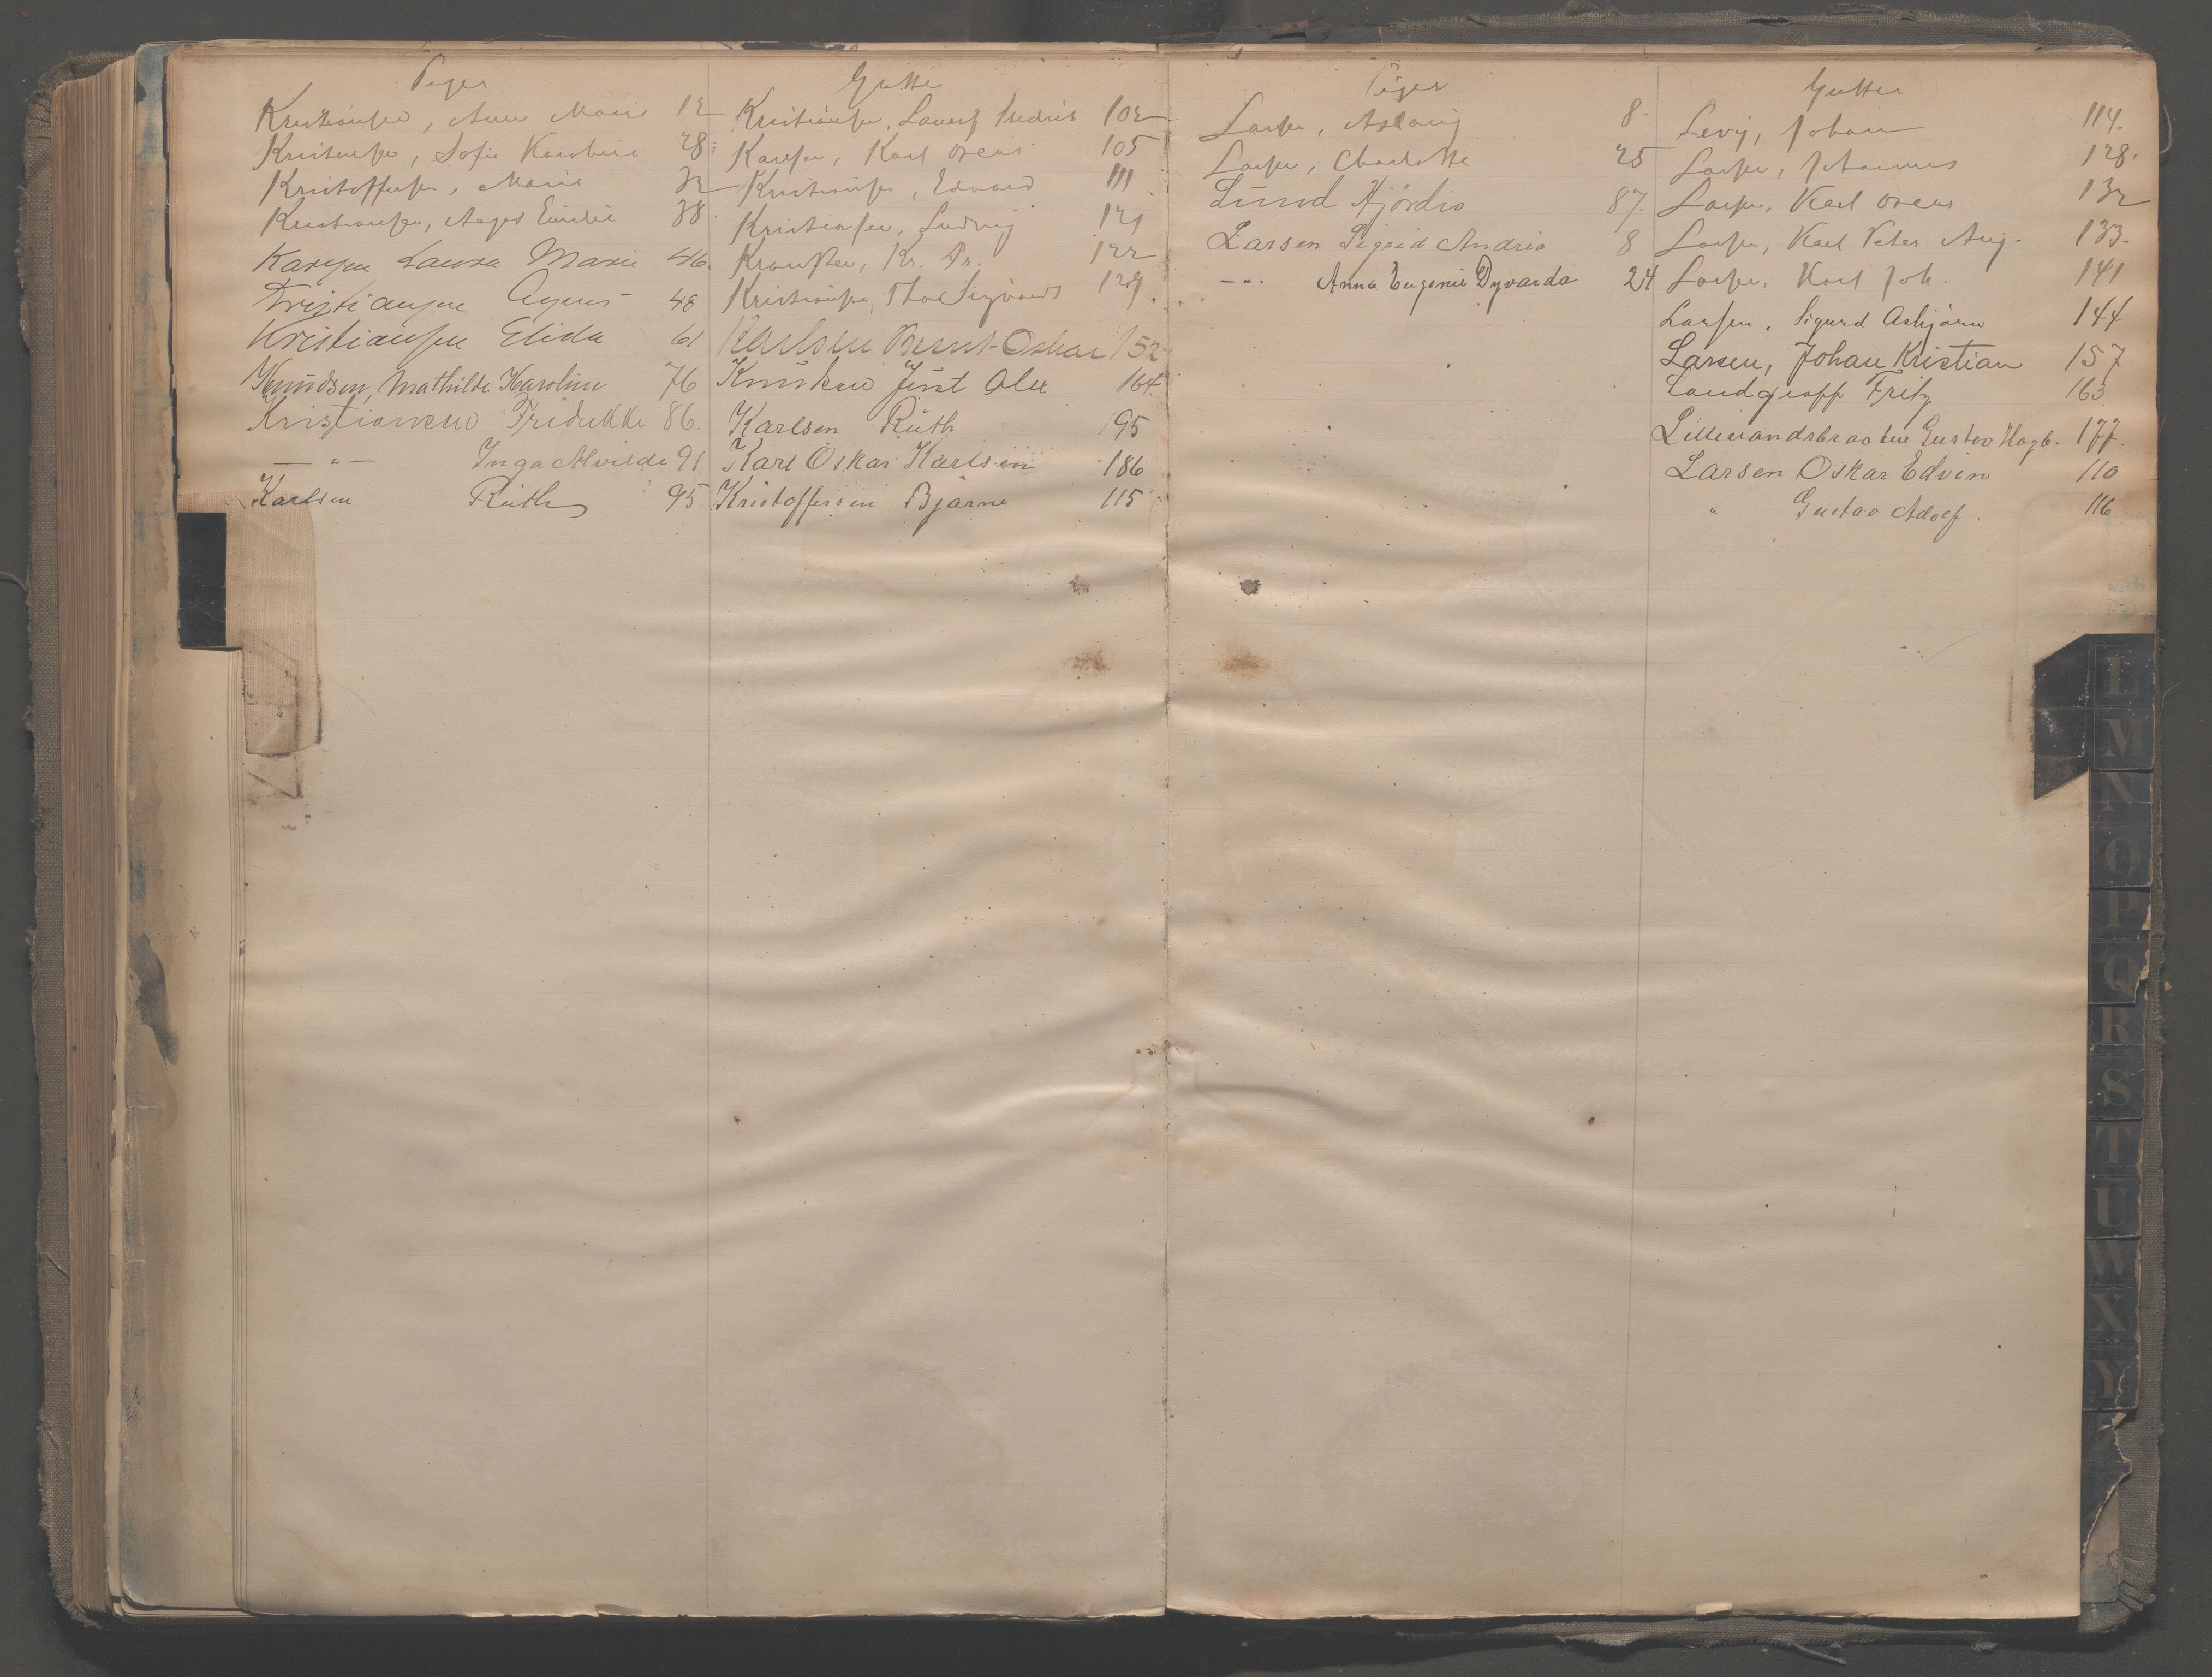 Piger
Kristiansen, Anna Marie 12
Kristensen, Sofie Karoline 28
Kristoffersen, Marie 32
Kristiansen, Agnes Emilie 38
Karlsen Laura Marie 46
Kristiansen Agnes 48
Kristiansen Elida 61
Knudsen, Mathilde Karoline 76
Kristiansen Fredrikke 86.
— " — Inga Alvilde 91
Karlsen Ruth 95
Gutter
Kristiansen, Lauritz Fredrik 102
Karlsen, Karl Oscar 105
Kristiansen, Edvard 111
Kristiansen, Ludvig 121
Kr. Fr. 122
Kristiansen, Sigvard 129
Karlsen Bernt Oskar 152
Knutsen Just Alex 164
Karlsen Ruth 95
Karl Oskar Karlsen 186
Kristoffersen Bjarne 115
Piger
Larsen, Aslaug 8.
Larsen, Charlotte 25
Lund Hjördis 87.
Larsen Sigrid Andrea 8
--- Anna Eugenie Dyvarda 24
Gutter
Levy, Johan 114.
Larsen, Johannes 128.
Larsen, Karl Oscar 132
Larsen, Karl Peter Aug. 133.
Larsen, Karl Joh. 141
Larsen, Sigurd Asbjörn 144
Larsen, Johan Kristian 157
Landgraff Fritz 163
Lillevandsbraaten Gustav Hagb. 177.
Larsen Oskar Edvin 110
" Gustav Adolf. 116
L
M
N
O
P
Q
R
S
T
U
W
X
Y